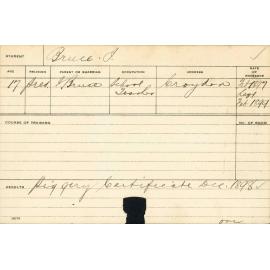 STUDENT Bruce. J. 1
AGE RELIGION PARENT OR GUARDIAN OCCUPATION ADDRESS DATE OF ENTRANCE
17 Pres. J Bruce School Teacher Croydon Feb 1897
Sept
Feb 1899
COURSE OF TRAINING NO. OF ROOM
RESULTS Piggery Certificate Dec. 1898
over